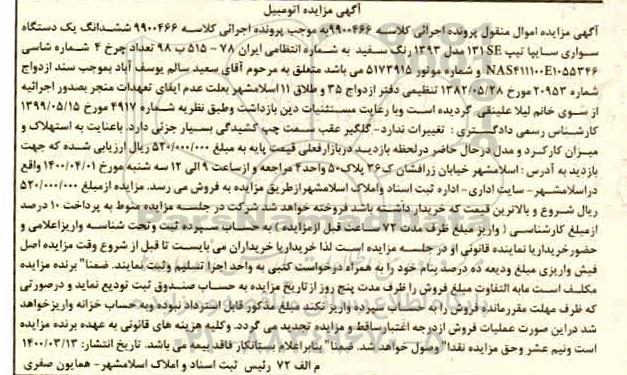 آگهی مزایده اتومبیل
آگهی مزایده اموال منقول پرونده اجرائی کلاسه ۹۹۰۰۴۶۶به موجب پرونده اجرائی کلاسه ۹۹۰۰۴۶۶ ششدانگ یک دستگاه
سواری سایپا تیپ ۱۳۱SE مدل ۱۳۹۳ رنگ سفید به شماره انتظامی ایران ۷۸ – ۵۱۵ ب ۹۸ تعداد چرخ ۴ شماره شاسی
NAS۴۱۱۱۰۰E۱۰۵۵۳۴۶ و شماره موتور ۵۱۷۳۹۱۵ می باشد متعلق به مرحوم آقای سعید سالم یوسف آباد بموجب سند ازدواج
شماره ۲۰۹۵۳ مورخ ۱۳۸۲/۰۵/۲۸ تنظیمی دفتر ازدواج ۳۵ و طلاق ۱۱ اسلامشهر بعلت عدم ایفای تعهدات منجر بصدور اجرائیه
از سوی خانم لیلا علینقی گردیده است وبا رعایت مستثنیات دین بازداشت وطبق نظریه شماره ۴۹۱۷ مورخ ۱۳۹۹/۰۵/۱۵
کارشناس رسمی دادگستری : تغییرات ندارد– گلگیر عقب سمت چپ کشیدگی بسیار جزئی دارد. باعنایت به استهلاک و
میزان کارکرد و مدل درحال حاضر درلحظه بازدید دربازارفعلی قیمت پایه به مبلغ ۵۲۰/۰۰۰/۰۰۰ ریال ارزیابی شده که جهت
بازدید به آدرس : اسلامشهر خیابان زرافشان ک۳۶ پلاک۵۰ واحد۴ مراجعه و ازساعت ۹ الی ۱۲ سه شنبه مورخ ۱۴۰۰/۰۴/۰۱ واقع
دراسلامشهر – سایت اداری – اداره ثبت اسناد واملاک اسلامشهرازطریق مزایده به فروش می رسد. مزایده ازمبلغ ۵۲۰/۰۰۰/۰۰۰
ریال شروع و بالاترین قیمت که خریدارداشته باشد فروخته خواهد شد شرکت در جلسه مزایده منوط به پرداخت ۱۰ درصد
ازمبلغ کارشناسی ( واریز مبلغ ظرف مدت ۷۲ ساعت قبل ازمزایده ) به حساب سپرده ثبت وتحت شناسه واریزاعلامی و
حضورخریداریا نماینده قانونی او در جلسه مزایده است لذا خریداریا خریداران می بایست تا قبل از شروع وقت مزایده اصل
فیش واریزی مبلغ ودیعه ده درصد بنام خود را به همراه درخواست کتبی به واحد اجرا تسلیم وثبت نمایند. ضمنا" برنده مزایده
مکلف است مابه التفاوت مبلغ فروش را ظرف مدت پنج روز ازتاریخ مزایده به حساب صندوق ثبت تودیع نماید و درصورتی
که ظرف مهلت مقررمانده فروش را به حساب سپرده واریز نکند مبلغ مذکور قابل استرداد نبوده وبه حساب خزانه واریزخواهد
شد دراین صورت عملیات فروش ازدرجه اعتبارساقط و مزایده تجدید می گردد. وکلیه هزینه های قانونی به عهده برنده مزایده
است ونیم عشر وحق مزایده نقدا" وصول خواهد شد. ضمنا" بنابراعلام بستانکار فاقد بیمه می باشد. تاریخ انتشار: ۱۴۰۰/۰۳/۱۳
م الف ۷۲ رئیس ثبت اسناد و املاک اسلامشهر– همایون صفری